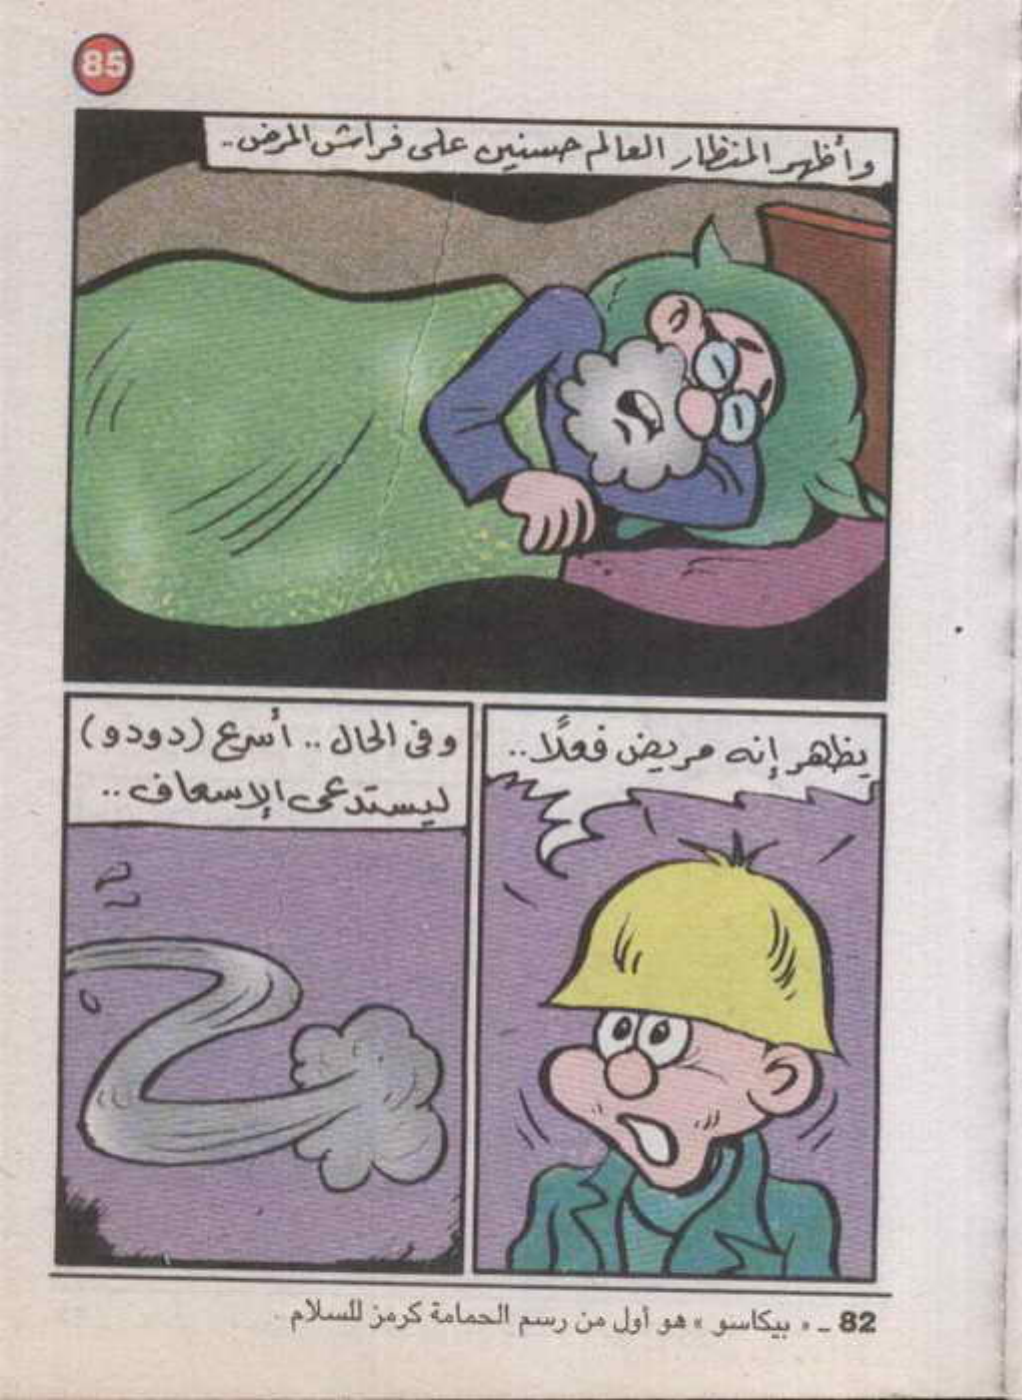 85
وأظهر المنظار العالم حسنين على فراش المرض..
يظهر إنه مريض فعلًا..
وفى الحال.. أسرع (دودو)
ليستدعى الإسعاف..
82 ـ « بيكاسو » هو أول من رسم الحمامة كرمز للسلام .